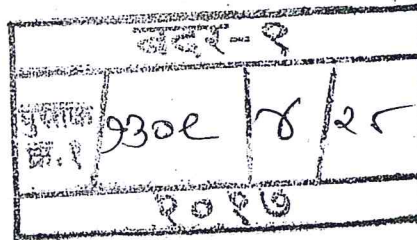 बदर-१
पुस्तक क्र.१ ७३०९ ४ २८
२०१७